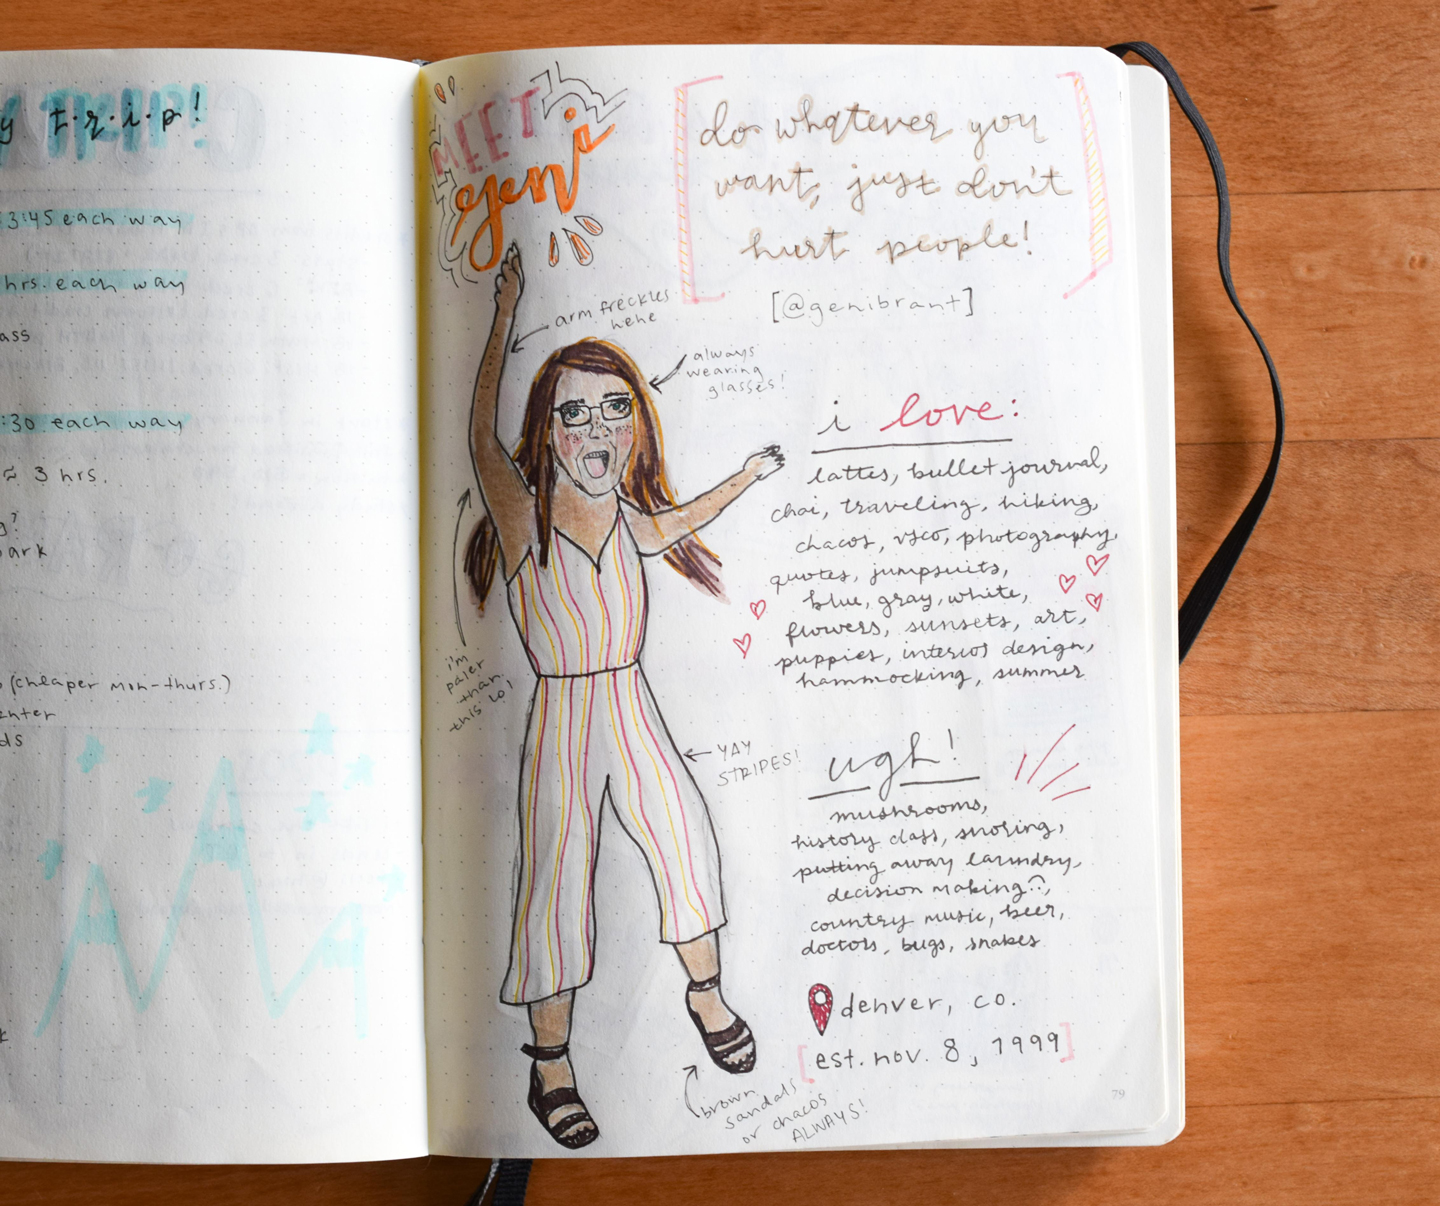 y t·r·i·p!
3:45 each way
hrs. each way
ass
:30 each way
≈ 3 hrs.
g?
park
(cheaper mon-thurs.)
enter
ds
MEET
geni
do whatever you
want, just don't
hurt people!
[@genibrant]
arm freckles
hehe
always
wearing
glasses!
i love:
lattes, bullet journal,
chai, traveling, hiking,
chacos, vsco, photography,
quotes, jumpsuits,
blue, gray, white,
flowers, sunsets, art,
puppies, interior design,
hammocking, summer
i'm
paler
than
this lol
YAY
STRIPES!
ugh!
mushrooms,
history class, snoring,
putting away laundry,
decision making,
country music, beer,
doctors, bugs, snakes
denver, co.
[est. nov. 8, 1999]
brown
sandals
or chacos
ALWAYS!
79